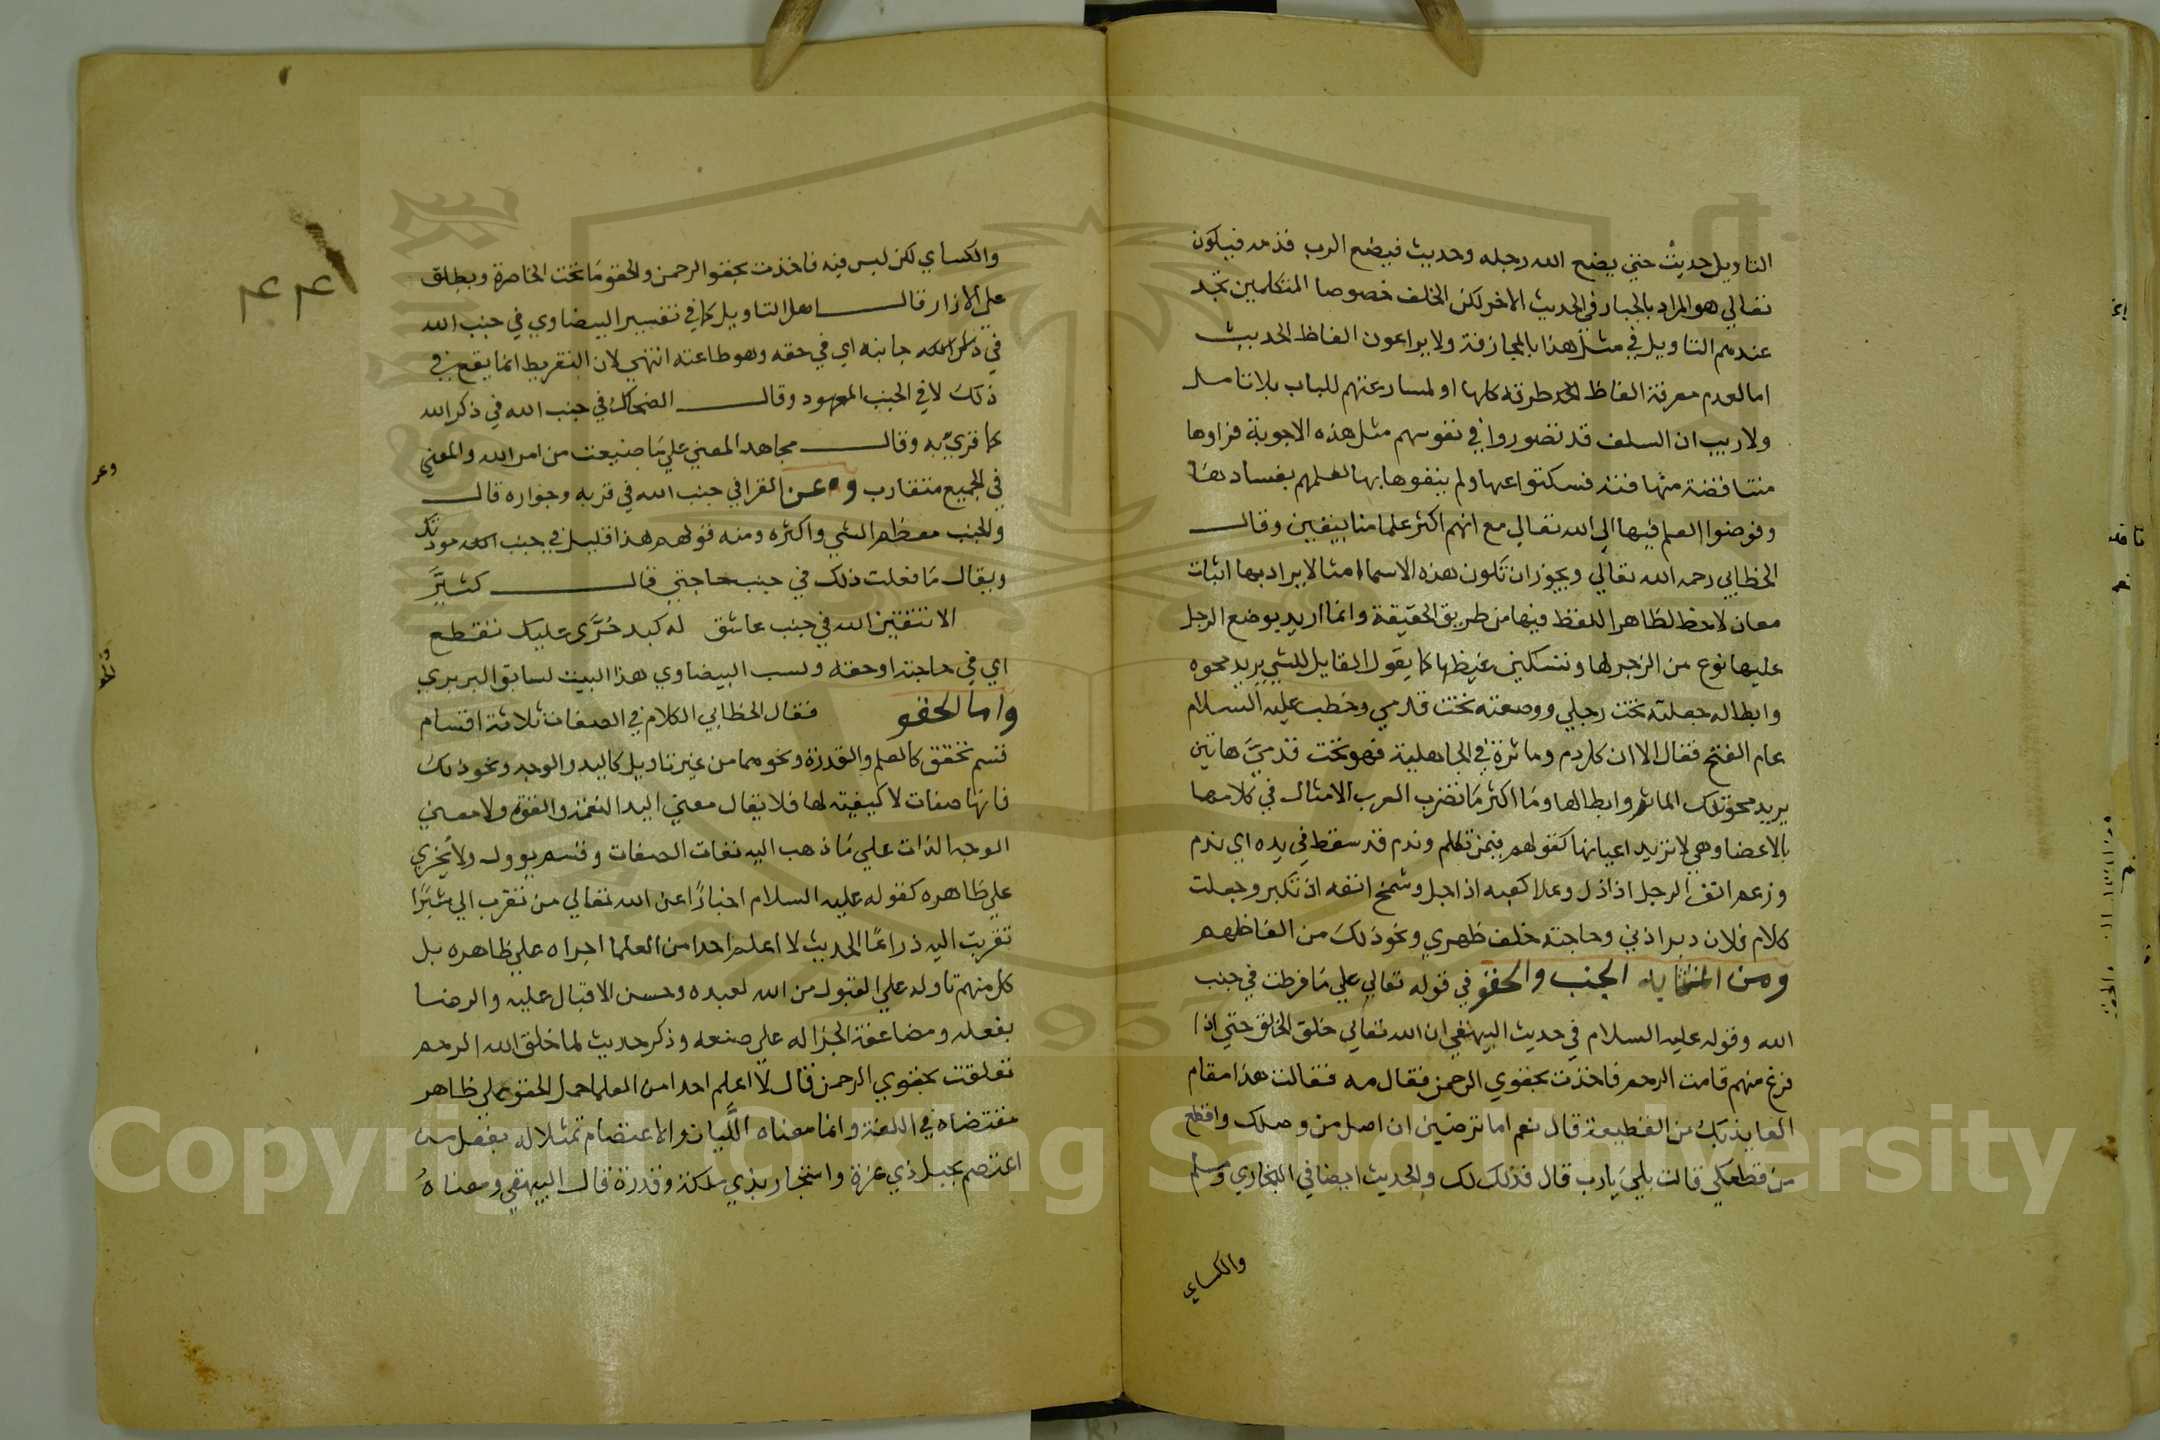 التاويل حديث حتي يضع الله رجله وحديث فيضع الرب قدمه فيكون
تعالي هو المراد بالجبار في الحديث الاخر لكن الخلف خصوصا المتكلمين تجد
عندهم التاويل في مثل هذا بالمجازفة ولا يراعون الفاظ الحديث
اما لعدم معرفة الفاظ طرقه كلها او لمسارعتهم للباب بلا تامل
ولا ريب ان السلف قد تصوروا في نفوسهم مثل هذه الاجوبة فراوها
متناقضة متهافتة فسكتوا عنها ولم يتفوها بها لعلمهم بفسادها
وفوضوا العلم فيها الي الله تعالي مع انهم اكثر علما منا بيقين وقال
الخطابي رحمه الله تعالي ويجوز ان تكون هذه الاسما امثالا يراد بها اثبات
معان لاحظ لظاهر اللفظ فيها من طريق الحقيقة وانما اريد بوضع الرجل
عليها نوع من الزجر لها وتسكين غيظها كما يقول القايل للشي يريد محوه
وابطاله جعلته تحت رجلي ووضعته تحت قدمي وخطب عليه السلام
عام الفتح فقال الا ان كل دم وماثرة في الجاهلية فهو تحت قدمي هاتين
يريد محو تلك الماثر وابطالها وما اكثر ما تضرب العرب الامثال في كلامها
بالاعضا وهي لا تريد اعيانها كقولهم فيمن تكلم وندم قد سقط في يده اي ندم
ورغم انف الرجل اذا ذل وعلا كعبه اذا جل وشمخ انفه اذ تكبر وجعلت
كلام فلان دبر اذني وحاجته خلف ظهري ونحو ذلك من الفاظهم
ومن المتشابه الجنب والحقو في قوله تعالي علي ما فرطت في جنب
الله وقوله عليه السلام في حديث البيهقي ان الله تعالي خلق الخلق حتي اذا
فرغ منهم قامت الرحم فاخذت بحقوي الرحمن فقال مه فقالت هذا مقام
العايذ بك من القطيعة قال نعم اما ترضين ان اصل من وصلك واقطع
من قطعك قالت بلي يا رب قال فذلك لك والحديث ايضا في البخاري ومسلم
والكساي
٤٤
والكساي لكن ليس فيه فاخذت بحقو الرحمن والحقو ما تحت الخاصرة ويطلق
علي الازار قال اهل التاويل كما في تفسير البيضاوي في جنب الله
في جانبه اي في حقه وهو طاعته انتهي لان التفريط انما يقع في
ذلك لا في الجنب المعهود وقال الضحاك في جنب الله في ذكر الله
كما قري به وقال مجاهد المعني علي ما ضيعت من امر الله والمعني
في الجميع متقارب وعن الفرا في جنب الله في قربه وجواره قال
والجنب معظم الشي واكثره ومنه قولهم هذا قليل في جنب مودتك
ويقال ما فعلت ذلك في جنب حاجتي قال كثير
الا تتقين الله في جنب عاشق له كبد حرى عليك تقطع
اي في حاجته او حقه ونسب البيضاوي هذا البيت لسابق البربري
واما الحقو فقال الخطابي الكلام في الصفات ثلاثة اقسام
قسم تحقق كالعلم والقدرة ونحوهما من غير تاويل كاليد والوجه ونحو ذلك
فانها صفات لا كيفية لها فلا يقال معني اليد النعمة والقوة ولا معني
الوجه الذات علي ما ذهب اليه نفات الصفات وقسم يوول ولا يجري
علي ظاهره كقوله عليه السلام اخبارا عن الله تعالي من تقرب الي شبرا
تقربت اليه ذراعا الحديث لا اعلم احدا من العلما اجراه علي ظاهره بل
كل منهم تاوله علي القبول من الله لعبده وحسن الاقبال عليه والرضا
بفعله ومضاعفة الجزا له علي صنعه وذكر حديث لما خلق الله الرحم
تعلقت بحقوي الرحمن قال لا اعلم احدا من العلما حمل الحقو علي ظاهر
مقتضاه في اللغة وانما معناه اللياذ والاعتصام تمثيلا له بفعل من
اعتصم بحبل ذي عزة واستجار بذي ملكة وقدرة قال البيهقي ومعناه
Copyright © King Saud University
1957